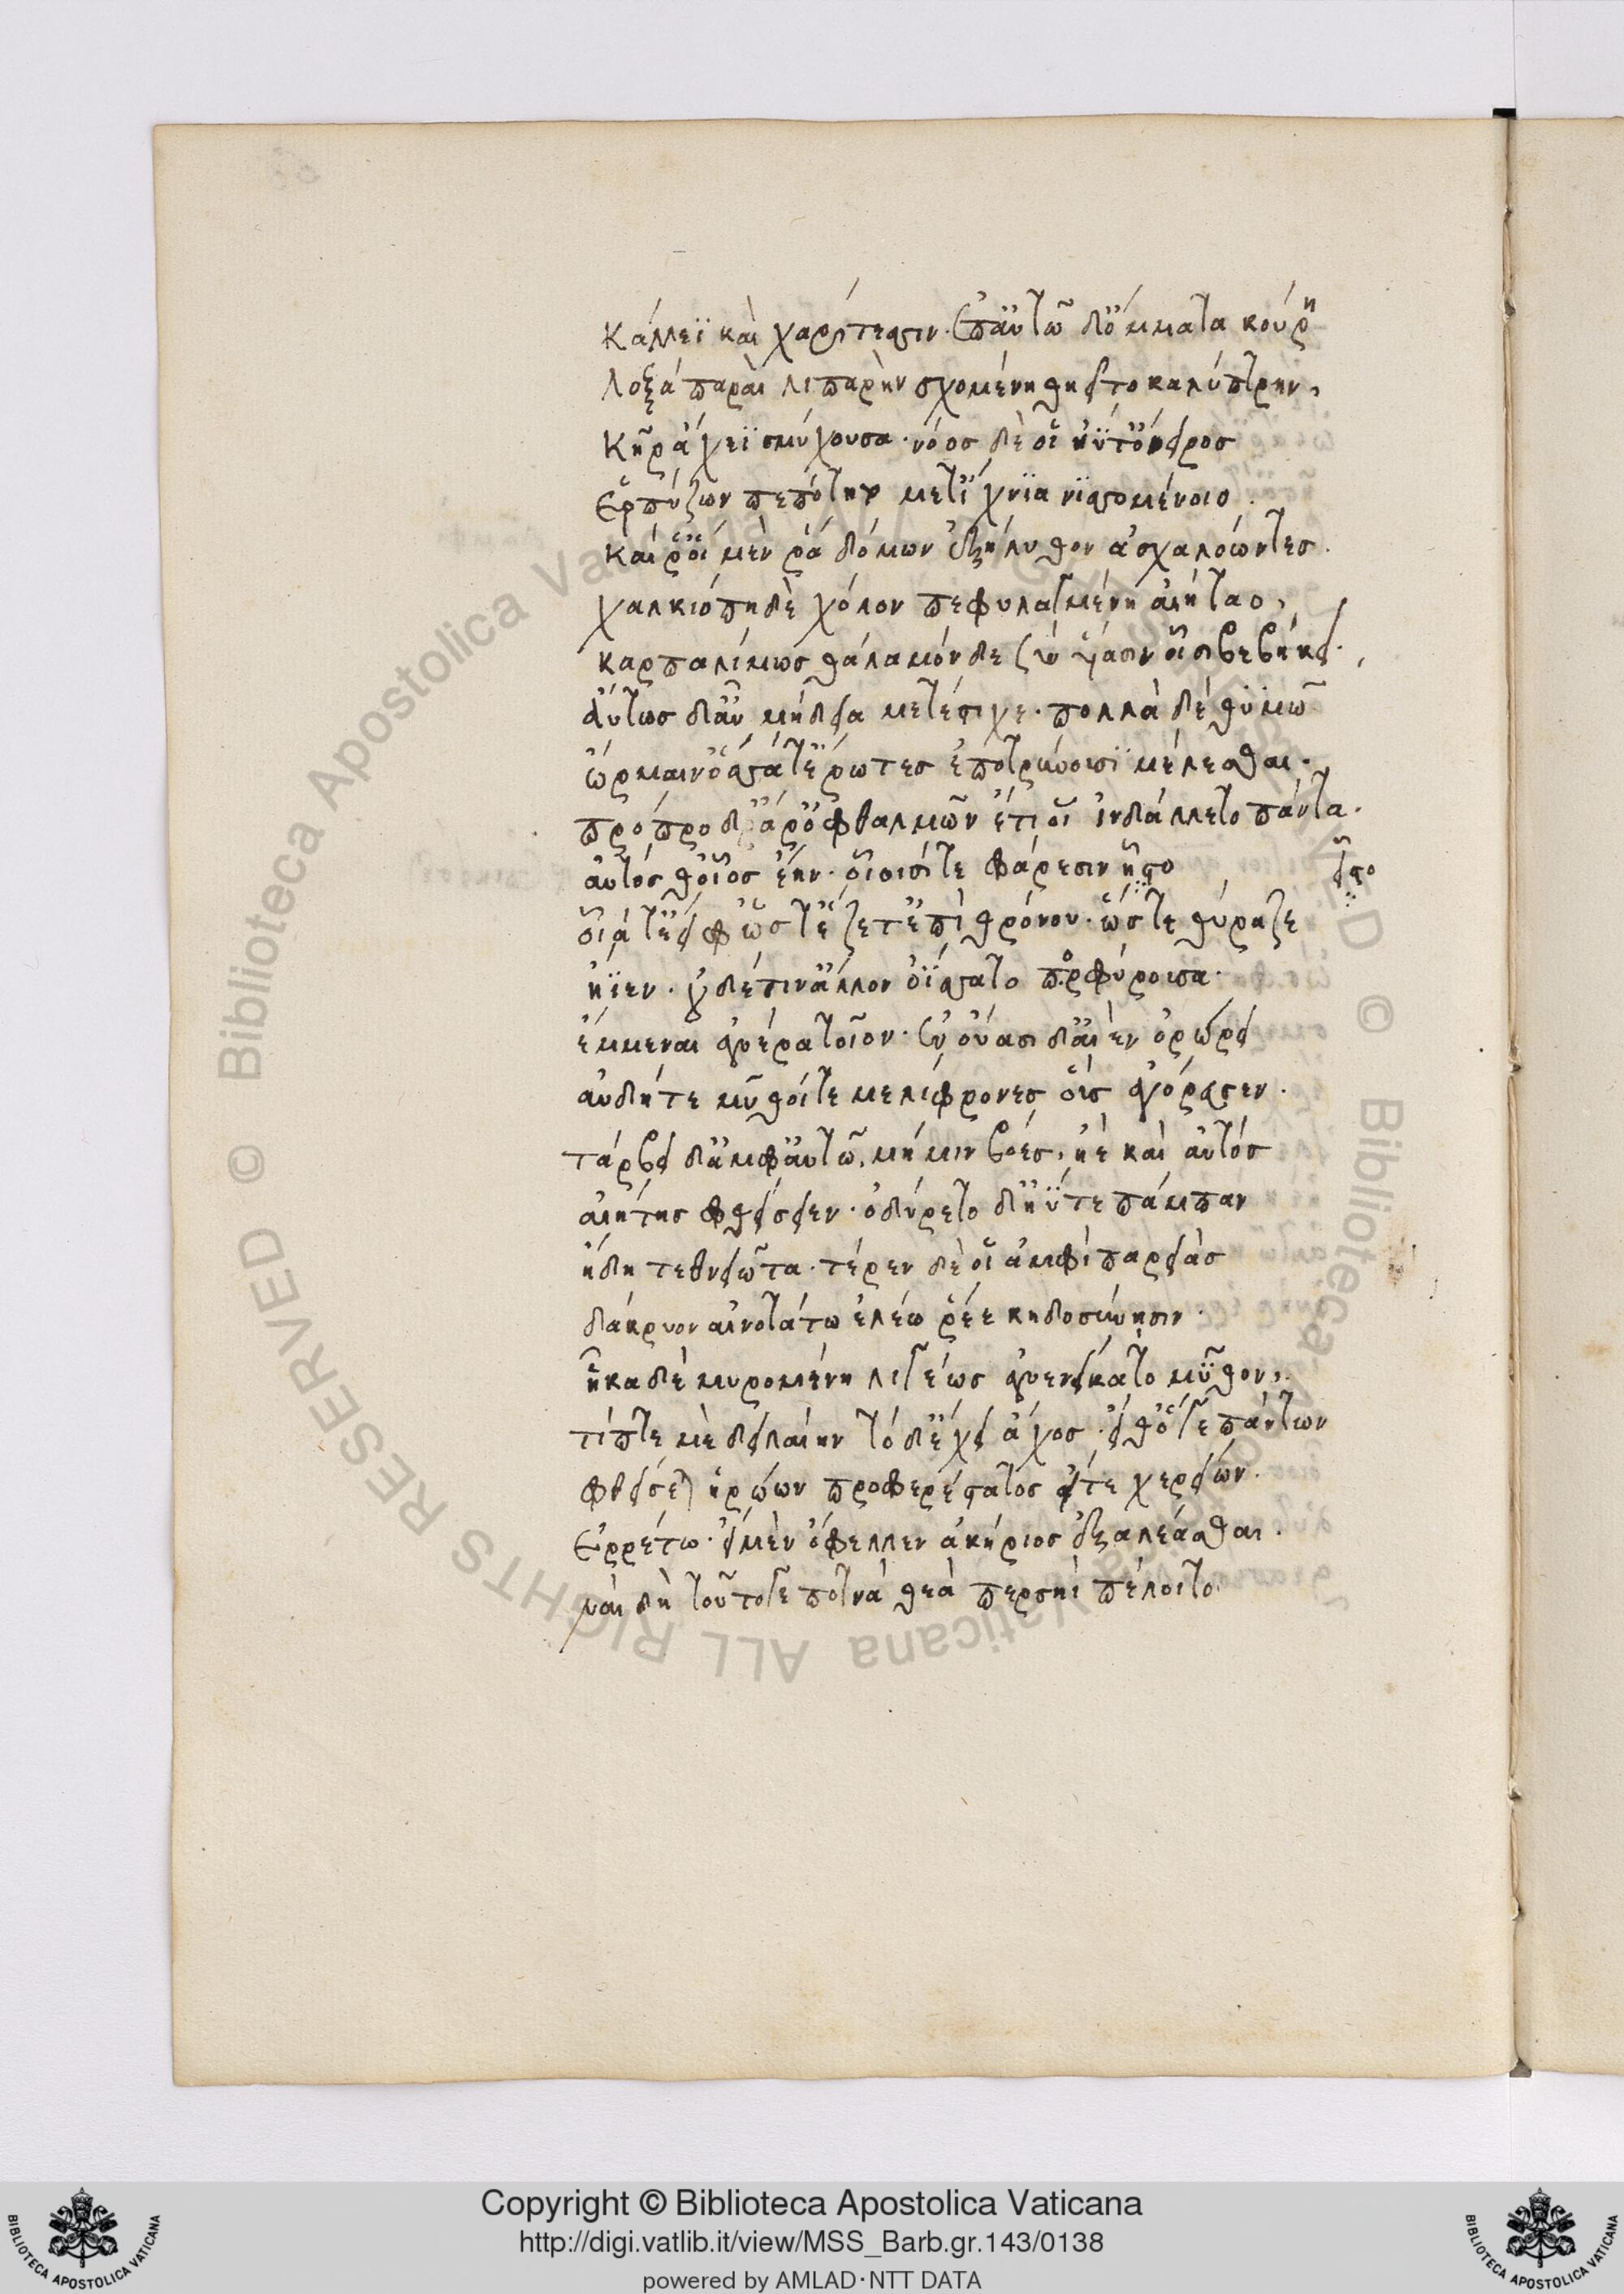 κάλλεϊ καὶ χαρίτεσσιν· ἐπ' αὐτῷ δ' ὄμματα κούρη
λοξὰ παραὶ λιπαρὴν σχομένη θηεῖτο καλύπτρην,
κῆρ ἄχεϊ σμύχουσα· νόος δέ οἱ ἠΰτ' ὄνειρος
ἑρπύζων πεπότητο μετ' ἴχνια νισσομένοιο.
καί ῥ' οἱ μέν ῥα δόμων ἐξήλυθον ἀσχαλόωντες.
χαλκιόπη δὲ χόλον πεφυλαγμένη αἰήταο,
καρπαλίμως θάλαμόνδε σὺν υἱάσιν οἷσι βεβήκει.
αὔτως δ' αὖ μήδεια μετέστιχε· πολλὰ δὲ θυμῷ
ὥρμαιν' ὅσσά τ' ἔρωτες ἐποτρύνουσι μέλεσθαι.
πρό προ δ' ἄρ' ὀφθαλμῶν ἔτι οἱ ἰνδάλλετο πάντα.
αὐτός θ' οἷος ἔην· οἵοισί τε φάρεσιν ἧστο
εἷστο
οἷά τ' ἔειφ' ὥς θ' ἕζετ' ἐπὶ θρόνου· ὥς τε θύραζε
ἤϊεν· οὐδέ τιν' ἄλλον ὀΐσσατο πορφύρουσα
ἔμμεναι ἀνέρα τοῖον· ἐν οὔασι δ' αἰὲν ὀρώρει
αὐδή τε μῦθοί τε μελίφρονες οὓς ἀγόρευσεν.
τάρβει δ' ἀμφ' αὐτῷ, μή μιν βόες, ἠὲ καὶ αὐτός
αἰήτης φθείσειεν· ὀδύρετο δ' ἠΰτε πάμπαν
ἤδη τεθνειῶτα· τέρεν δέ οἱ ἀμφὶ παρειάς
δάκρυον αἰνοτάτῳ ἐλέῳ ῥέε κηδοσύνῃσιν·
ἦκα δὲ μυρομένη λιγέως ἀνενείκατο μῦθον,
τίπτε με δειλαίην τόδ' ἔχει ἄχος· εἴθ' ὅγε πάντων
φθείσεται ἡρώων προφερέστατος εἴτε χερείων.
ἐρρέτω· εἰ μὲν ὄφελλεν ἀκήριος ἐξαλέασθαι.
ναὶ δὴ τοῦτό γε πότνα θεὰ περσηὶ πέλοιτο
Copyright © Biblioteca Apostolica Vaticana
http://digi.vatlib.it/view/MSS_Barb.gr.143/0138
powered by AMLAD·NTT DATA